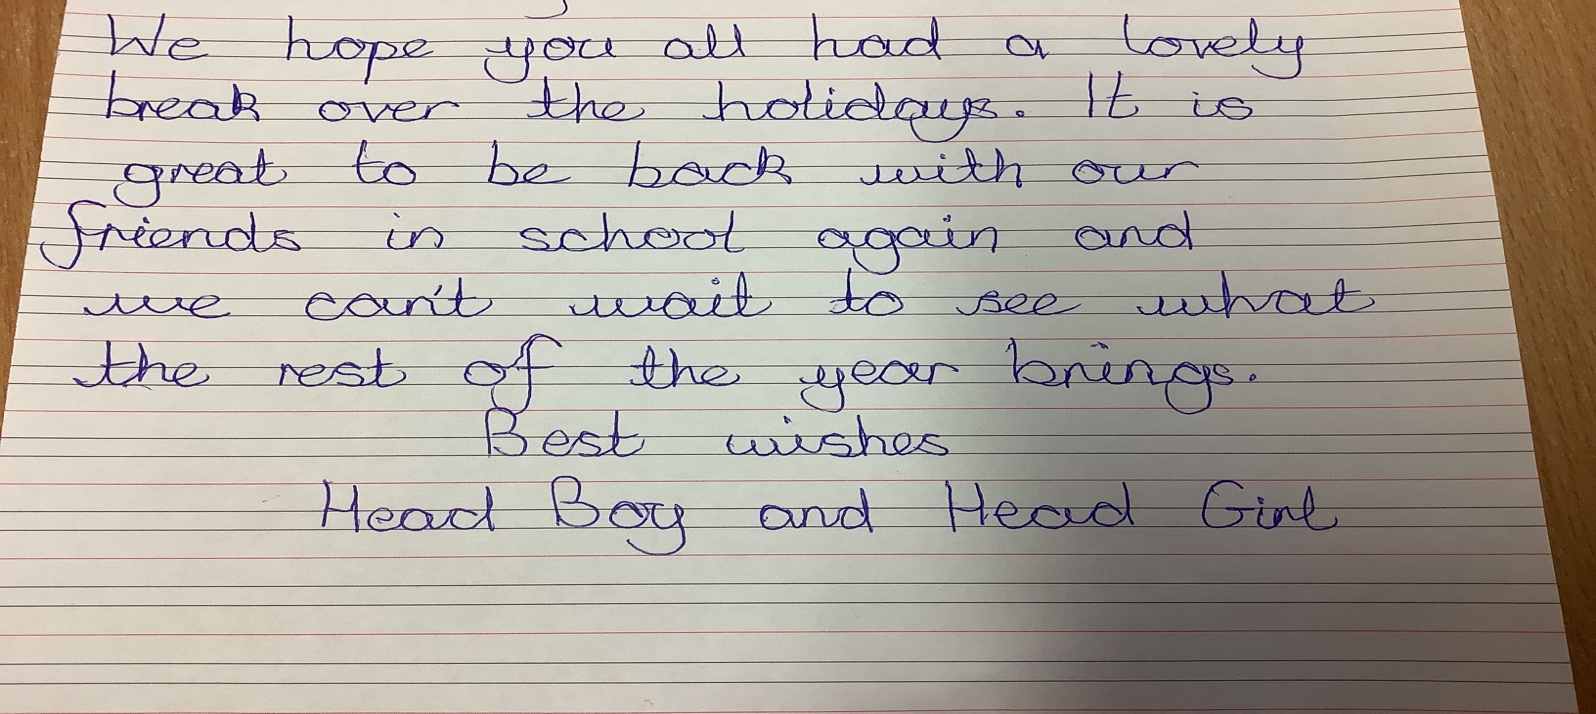 We hope you all had a lovely
break over the holidays. It is
great to be back with our
friends in school again and
we can't wait to see what
the rest of the year brings.
Best wishes
Head Boy and Head Girl